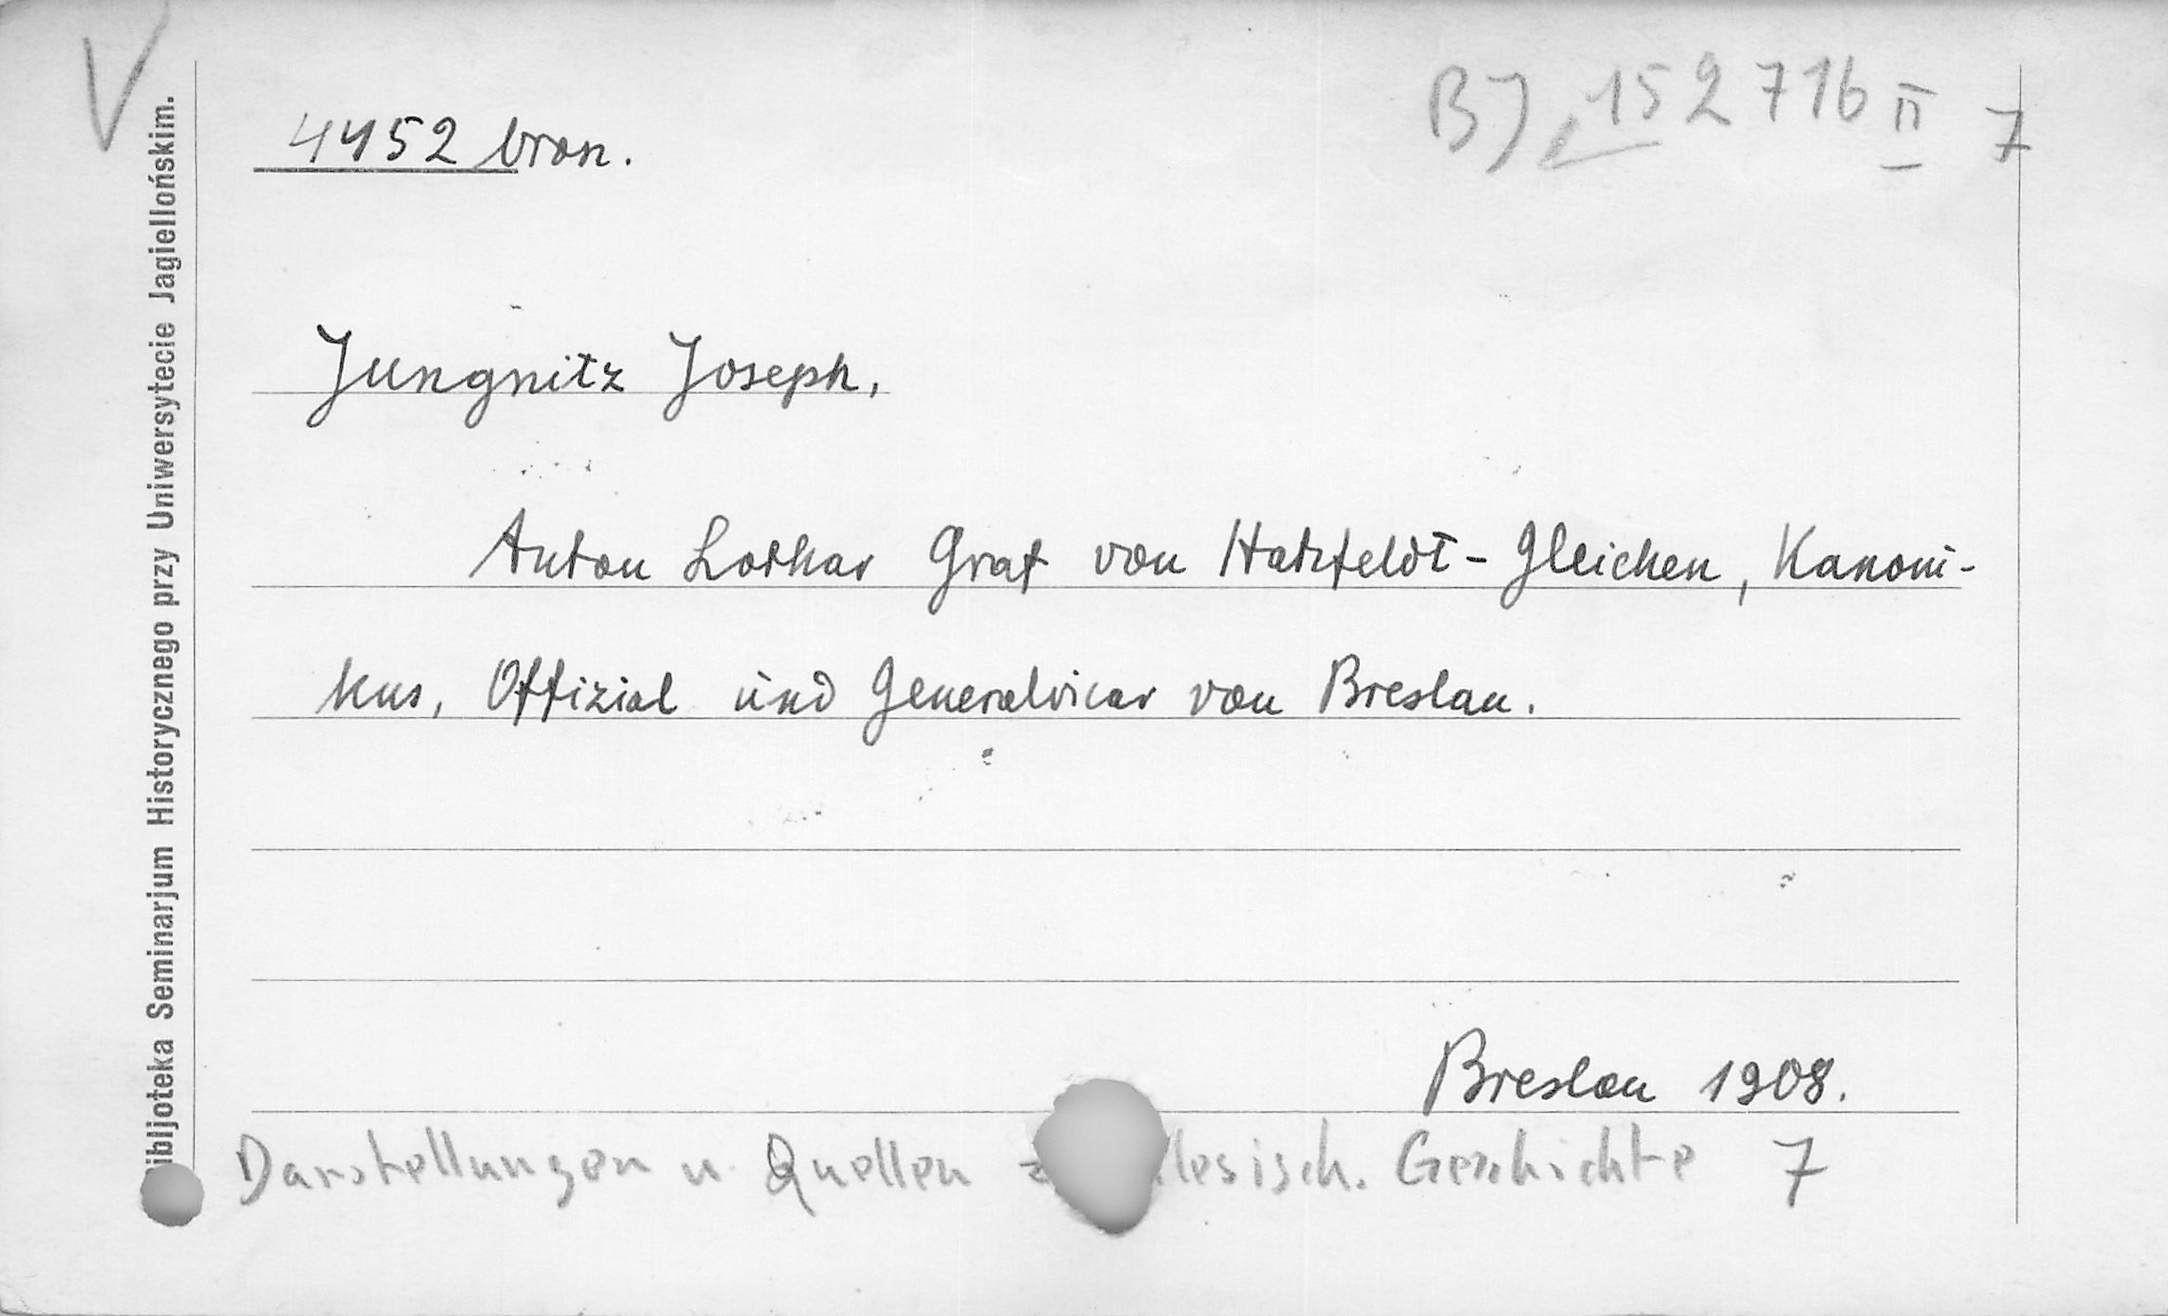 V
4452 bron.
BJ 152716 II 7
Jungnitz Joseph,
Anton Lothar Graf von Hatzfeldt-Gleichen, Kanoni-
kus, Offizial und Generalvicar von Breslau.
Breslau 1908.
Darstellungen u. Quellen z lesisch. Geschichte 7
ibljoteka Seminarjum Historycznego przy Uniwersytecie Jagiellońskim.